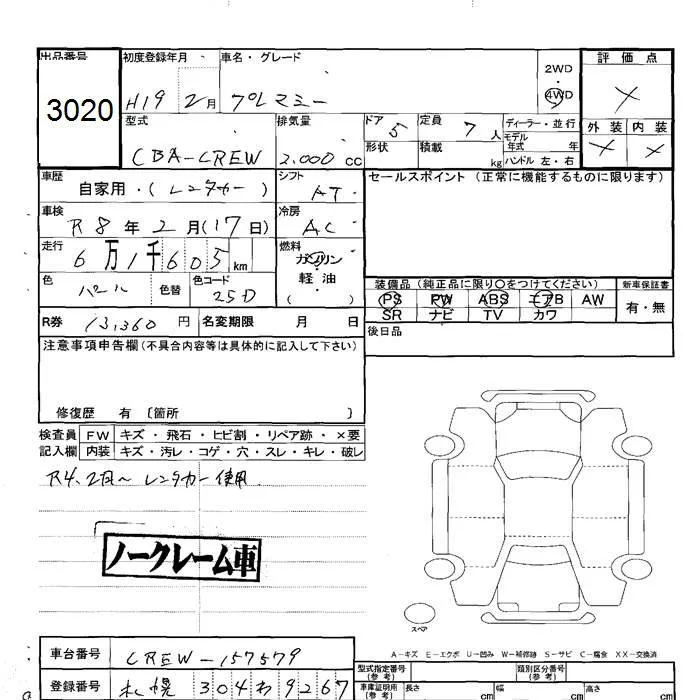 出品番号 初度登録年月 車名・グレード 2WD 評価点
3020 H19 2月 プレマシー 4WD ×
型式 排気量 ドア 5 定員 7人 ディーラー・並行 外装 内装
CBA-CREW 2.000 cc 形状 積載 kg モデル年式 年 × ×
ハンドル 左・右
車歴 自家用・(レンタカー) シフト AT セールスポイント (正常に機能するものに限ります)
車検 R8年2月(17日) 冷房 AC
走行 6万1千605km 燃料 ガソリン
軽・油
( )
色 パール 色替 色コード 25D 装備品 (純正品に限り○をつけてください) 新車保証書
PS PW ABS エアB AW 有・無
R券 13,360円 名変期限 月 日 SR ナビ TV カワ
後日品
注意事項申告欄(不具合内容等は具体的に記入して下さい)
修復歴 有 〔箇所 〕
検査員 FW キズ・飛石・ヒビ割・リペア跡・×要
記入欄 内装 キズ・汚レ・コゲ・穴・スレ・キレ・破レ
R4.2月~レンタカー使用
ノークレーム車
スペア
A-キズ E-エクボ U-凹み W-補修跡 S-サビ C-腐食 XX-交換済
車台番号 CREW-157579 型式指定番号(参考) 類別区分番号(参考)
登録番号 札幌 304わ9267 車庫証明用(参考) 長さ cm 幅 cm 高さ cm